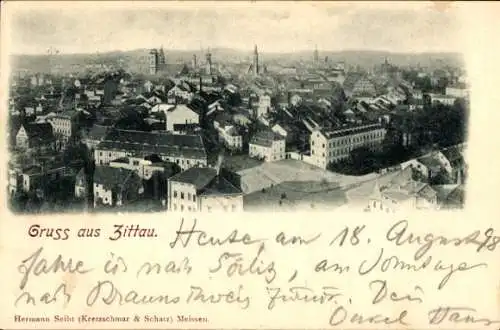 Gruss aus Zittau.
Heute am 18. August 98
fahre ich nach Görlitz, am Sonntag
nach Braunschweig zurück. Dein
Onkel Hans
Hermann Seibt (Kretzschmar & Schatz) Meissen.